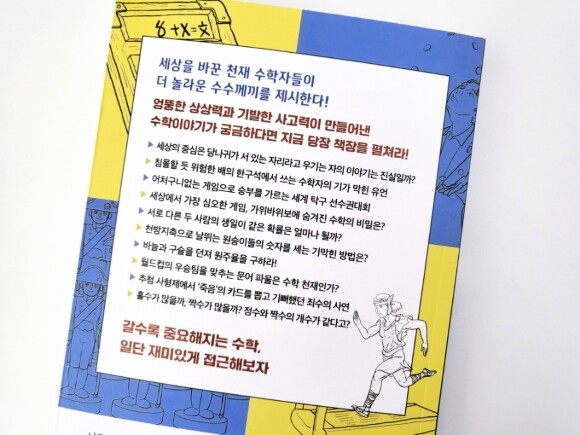 8+X=文
세상을 바꾼 천재 수학자들이
더 놀라운 수수께끼를 제시한다!
엉뚱한 상상력과 기발한 사고력이 만들어낸
수학이야기가 궁금하다면 지금 당장 책장을 펼쳐라!
▶ 세상의 중심은 당나귀가 서 있는 자리라고 우기는 자의 이야기는 진실일까?
▶ 침몰할 듯 위험한 배의 한구석에서 쓰는 수학자의 기가 막힌 유언
▶ 어처구니없는 게임으로 승부를 가르는 세계 탁구 선수권대회
▶ 세상에서 가장 심오한 게임, 가위바위보에 숨겨진 수학의 비밀은?
▶ 서로 다른 두 사람의 생일이 같은 확률은 얼마나 될까?
▶ 천방지축으로 날뛰는 원숭이들의 숫자를 세는 기막힌 방법은?
▶ 바늘과 구슬을 던져 원주율을 구하라!
▶ 월드컵의 우승팀을 맞추는 문어 파울은 수학 천재인가?
▶ 추첨 사형제에서 '죽음'의 카드를 뽑고 기뻐했던 죄수의 사연
▶ 홀수가 많을까, 짝수가 많을까? 정수와 짝수의 개수가 같다고?
갈수록 중요해지는 수학,
일단 재미있게 접근해보자